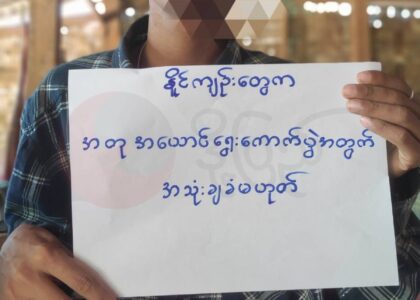 နိုင်ကျဉ်းတွေက
အတု အယောင်ရွေးကောက်ပွဲအတွက်
အသုံးချခံမဟုတ်